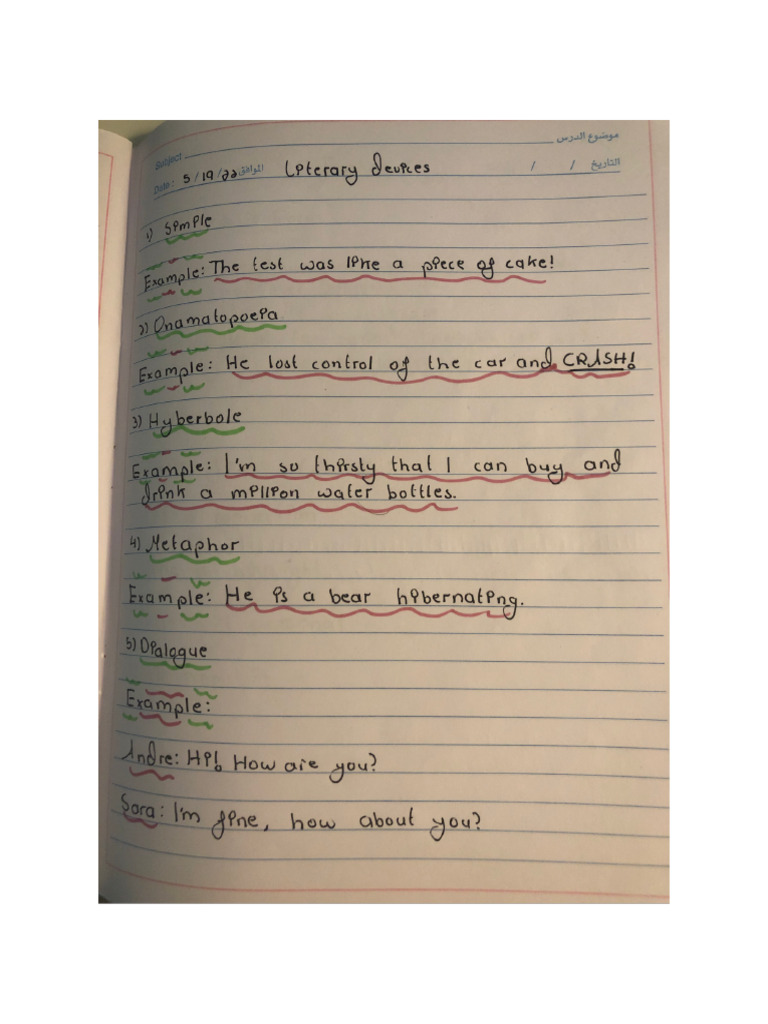 Subject موضوع الدرس
Date : 5/19/22 الموافق Literary devices / / التاريخ
1) Simple
Example: The test was like a piece of cake!
2) Onamatopoeia
Example: He lost control of the car and CRASH!
3) Hyberbole
Example: I'm so thirsty that I can buy and
drink a million water bottles.
4) Metaphor
Example: He is a bear hibernating.
5) Dialogue
Example:
Andre: Hi! How are you?
Sora: I'm fine, how about you?